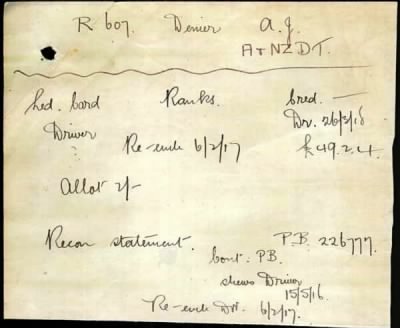 R 607. Denier A. J.
A & NZ D T.
Led. Card Ranks. Cred. —
Driver Dr. 26/2/16
Re-enls 6/2/17 £49.2.4.
Allot 2/-
Recon statement. P.B. 226777.
Cont. P.B.
shews Driver
15/5/16
Re-enls Drv. 6/2/17.